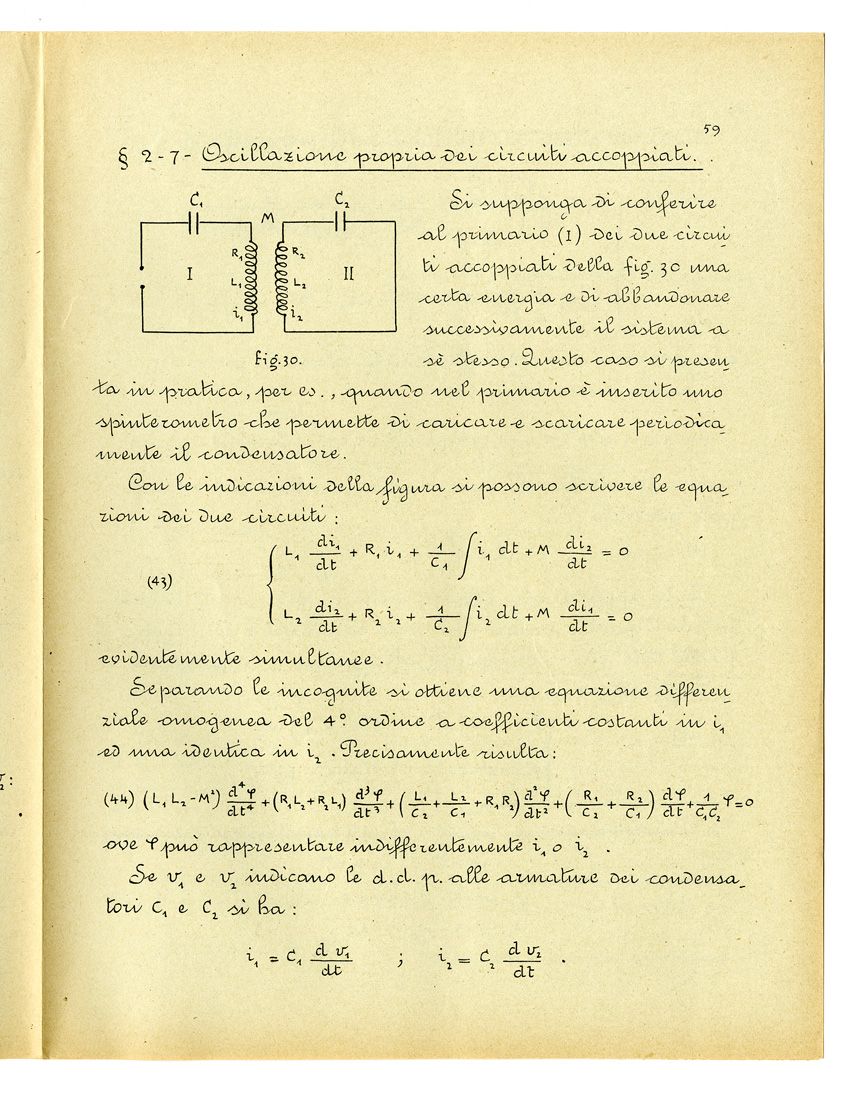 59
§ 2-7- Oscillazione propria dei circuiti accoppiati.
C₁ M C₂
R₁ R₂
I L₁ L₂ II
i₁ i₂
fig. 30.
Si supponga di conferire
al primario (I) dei due circui
ti accoppiati della fig. 30 una
certa energia e di abbandonare
successivamente il sistema a
sè stesso. Questo caso si presen
ta in pratica, per es., quando nel primario è inserito uno
spinterometro che permette di caricare e scaricare periodica
mente il condensatore.
Con le indicazioni della figura si possono scrivere le equa
zioni dei due circuiti :
(43) { L₁ di₁/dt + R₁ i₁ + 1/C₁ ∫ i₁ dt + M di₂/dt = 0
L₂ di₂/dt + R₂ i₂ + 1/C₂ ∫ i₂ dt + M di₁/dt = 0
evidentemente simultanee.
Separando le incognite si ottiene una equazione differen
ziale omogenea del 4º ordine a coefficienti costanti in i₁
ed una identica in i₂. Precisamente risulta:
(44) (L₁ L₂ - M²) d⁴φ/dt⁴ + (R₁ L₂ + R₂ L₁) d³φ/dt³ + (L₁/C₂ + L₂/C₁ + R₁ R₂) d²φ/dt² + (R₁/C₂ + R₂/C₁) dφ/dt + 1/C₁C₂ φ = 0
ove φ può rappresentare indifferentemente i₁ o i₂ .
Se v₁ e v₂ indicano le d.d.p. alle armature dei condensa
tori C₁ e C₂ si ha :
i₁ = C₁ d v₁/dt ; i₂ = C₂ d v₂/dt .